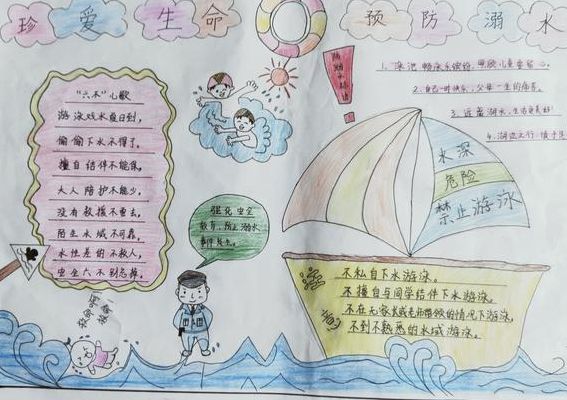 珍爱生命
预防溺水
"六不"心歌
游泳戏水夏日到,
偷偷下水不得了。
擅自结伴不能保,
大人陪护不能少。
没有救援不要去,
陌生水域不可靠。
水性差的不救人,
安全六不别忘掉。
强化安全
教育,防止溺水
事件发生。
2.自己一时快乐,父母一生的痛苦。
水深
危险
禁止游泳
不私自下水游泳。
不擅自与同学结伴下水游泳。
不在无家长或老师带领的情况下游泳。
不到不熟悉的水域游泳。